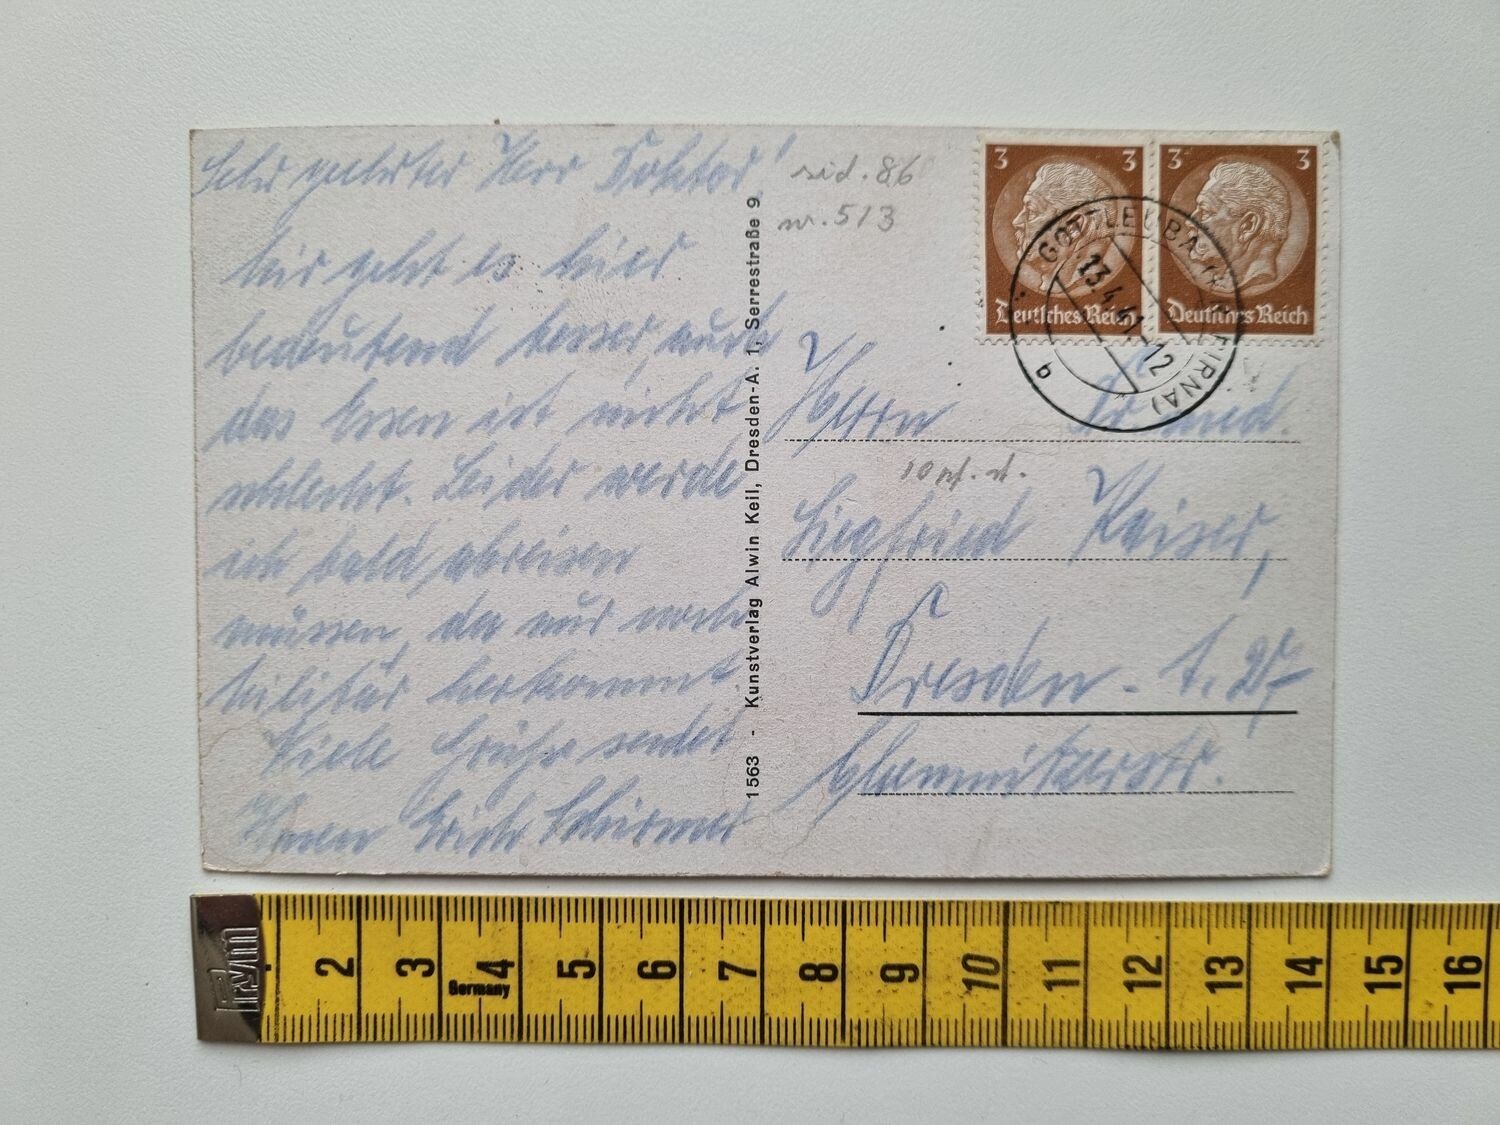 Sehr geehrter Herr Doktor!
Mir geht es hier
bedeutend besser, auch
das Essen ist nicht
schlecht. Leider werde
ich bald abreisen
müssen, da nur noch
Militär herkommt.
Viele Grüße sendet
Ihnen Erich Schirmer
1563 - Kunstverlag Alwin Keil, Dresden-A. 1, Serrestraße 9
sid. 86
nr. 513
3 3
Deutsches Reich
3 3
Deutsches Reich
GOTTLEUBA (PIRNA)
13.4.41.12
b
Herrn Dr. med.
Siegfried Kaiser,
Dresden-A. 27
Chemnitzerstr.
Prym
Germany
2 3 4 5 6 7 8 9 10 11 12 13 14 15 16